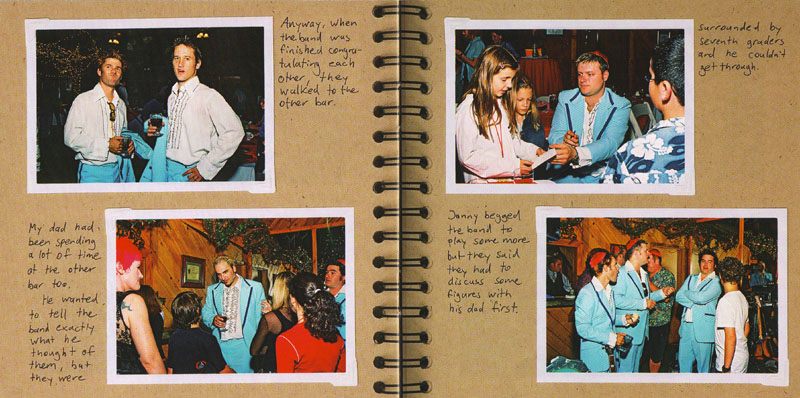 Anyway, when
the band was
finished congra-
tulating each
other, they
walked to the
other bar.
My dad had
been spending
a lot of time
at the other
bar too.
He wanted
to tell the
band exactly
what he
thought of
them, but
they were
surrounded by
seventh graders
and he couldn't
get through.
Jonny begged
the band to
play some more
but they said
they had to
discuss some
figures with
his dad first.